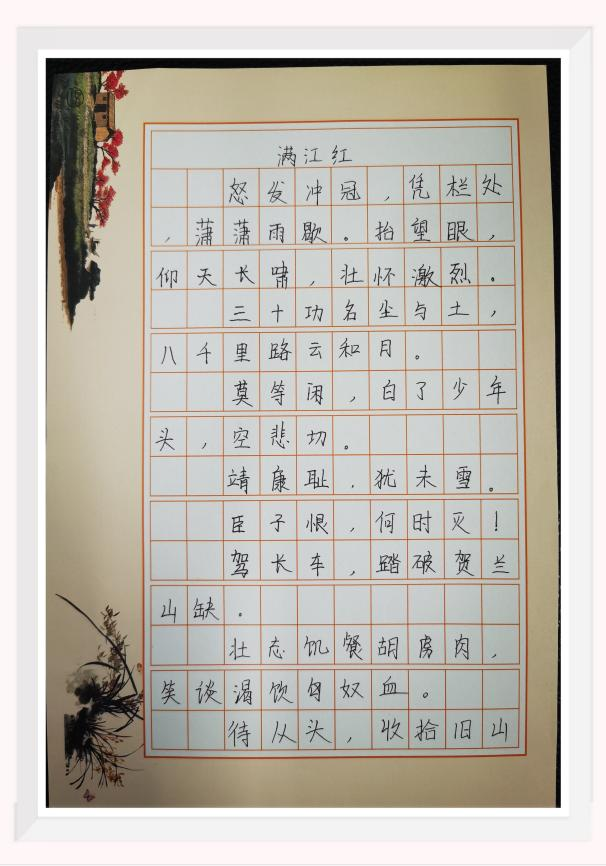 满江红
怒发冲冠，凭栏处
，萧萧雨歇。抬望眼，
仰天长啸，壮怀激烈。
三十功名尘与土，
八千里路云和月。
莫等闲，白了少年
头，空悲切。
靖康耻，犹未雪。
臣子恨，何时灭！
驾长车，踏破贺兰
山缺。
壮态饥餐胡虏肉，
笑谈渴饮匈奴血。
待从头，收拾旧山